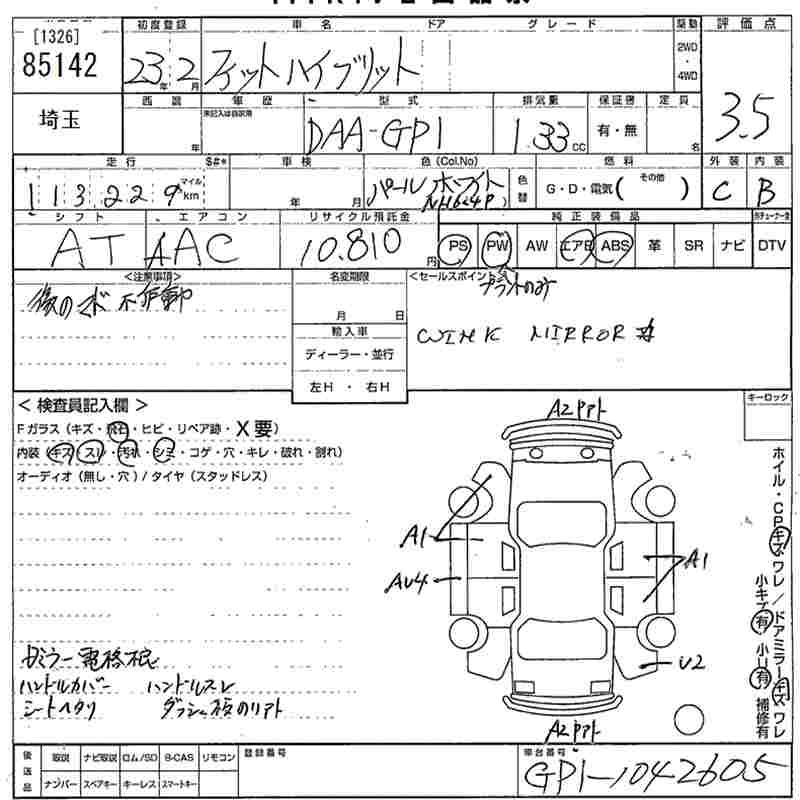 [1326]
85142
初度登録 車名 ドア グレード 駆動 評価点
23年2月 フィットハイブリット 2WD・4WD 3.5
埼玉
西暦 年 年歴 未記入は自家用 型式 排気量 保証書 定員
DAA-GP1 1.33cc 有・無 名
走行 S#* 車検 色(Col.No) 燃料 外装 内装
113,229 マイル km 年 月 パールホワイト NH624P) 色替 G・D・電気( その他 ) C B
シフト エアコン リサイクル預託金 純正装備品
AT AAC 10.810円 PS PW AW エアB ABS 革 SR ナビ DTV
<注意事項> 名変期限 <セールスポイント>
後のマド不作動 月 日
輸入車 WINK MIRROR
ディーラー・並行
左H・右H
<検査員記入欄> キーロック
Fガラス(キズ・飛石・ヒビ・リペア跡・X要)
内装(キズ・スレ・汚れ・シミ・コゲ・穴・キレ・破れ・割れ)
オーディオ(無し・穴)/タイヤ(スタッドレス)
A2PPT
A1
A1
AU4
U2
A2PPT
ホイル・CPキズワレ/ドアミラーキズワレ
小キズ有 小U有 補修有
ハンドルカバー ハンドルスレ
シートヘタリ
後送品 取説 ナビ取説 ロム/SD B-CAS リモコン 登録番号 車台番号
ナンバー スペアキー キーレス スマートキー GP1-1042605